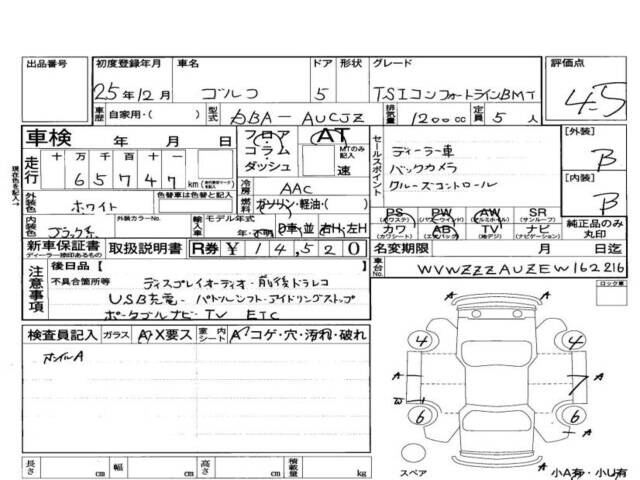 出品番号 初度登録年月 車名 ドア 形状 グレード 評価点
25年12月 ゴルフ 5 TSIコンフォートラインBMT 4.5
車歴 自家用・( ) 型式 DBA-AUCJZ 排気量 1200cc 定員 5人
車検 年 月 日 フロア コラム ダッシュ AT MTのみ記入 速
現在色を記入→
走行 十 万 千 百 十 一
65747 km
冷房 AAC
外装色 ホワイト 色替車は色替と記入 燃料 ガソリン・軽油・( )
内装色 ブラック系 外装カラーNo. 輸入車 モデル年式 年・不明 D車・並 右H・左H
セールスポイント
ディーラー車
バックカメラ
クルーズコントロール
[外装] B
[内装] B
PS (パワステ) PW (パワーウインド) AW (アルミホイル) SR (サンルーフ)
カワ (カワシート) AB (エアバック) TV (地デジ) ナビ (ナビゲーション)
純正品のみ丸印
新車保証書 ディーラー捺印あるもの 取扱説明書 R券 ¥14,520 名変期限 月 日迄
車台No. WVWZZZAUZEW162216
注意事項 後日品[ ]
不具合箇所等
ディスプレイオーディオ・前後ドラレコ
USB充電・パドルシフト・アイドリングストップ
ポータブルナビ・TV ETC
ロック車
検査員記入 ガラス A・X要ス 室内シート A・コゲ・穴・汚れ・破れ
ホイルA
4 4
A A A
7
W
6 6
A
スペア
小A有・小U有
長さ cm 幅 cm 高さ cm 積載量 kg